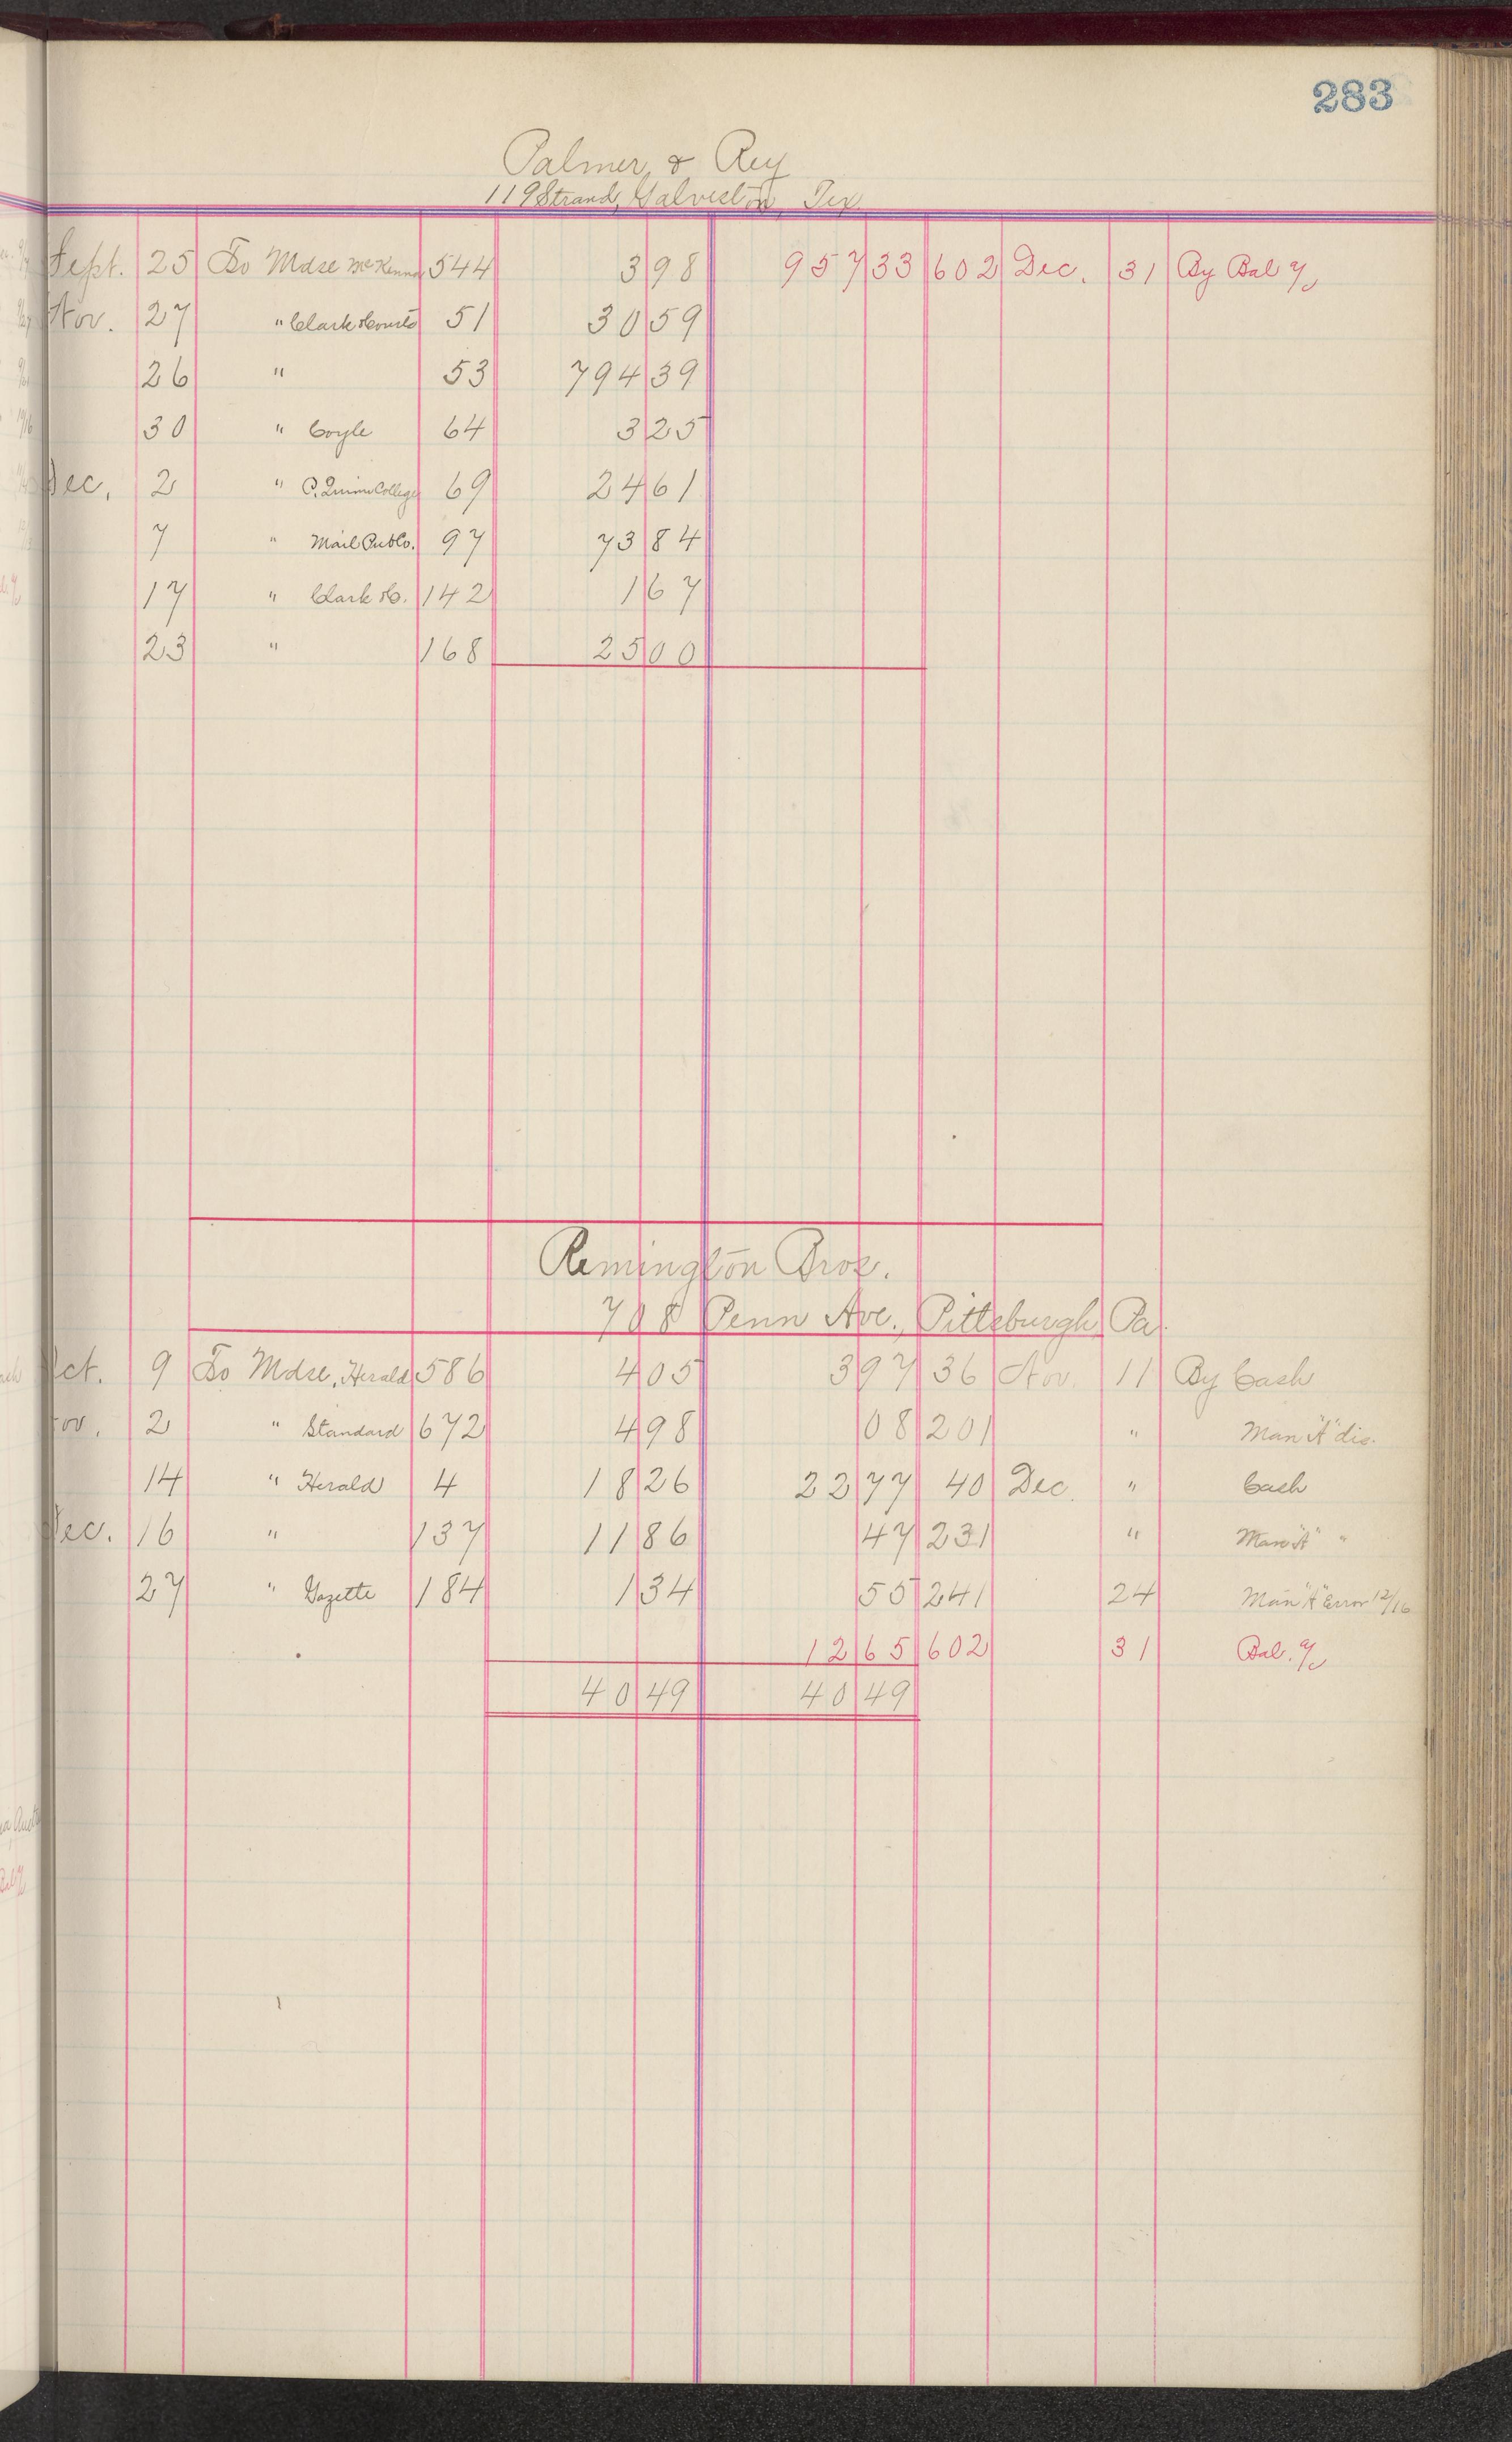 283
Palmer & Rey
119 Strand, Galveston, Tex
Sept. 25 To Mdse McKenna 544 3 98 957 33 602 Dec. 31 By Bal a/c
Nov. 27 " Clark & Courts 51 30 59
26 " 53 794 39
30 " Coyle 64 3 25
Dec. 2 " P. Quinn College 69 24 61
7 " Mail Pub Co. 97 73 84
17 " Clark & C. 142 1 67
23 " 168 25 00
Remington Bros.
708 Penn Ave., Pittsburgh, Pa.
Oct. 9 To Mdse, Herald 586 4 05 3 97 36 Nov. 11 By Cash
Nov. 2 " Standard 672 4 98 08 201 " Man "A" dis.
14 " Herald 4 18 26 22 77 40 Dec. " Cash
Dec. 16 " 137 11 86 47 231 " Man "A" "
27 " Gazette 184 1 34 55 241 24 Man "A" Error 12/16
12 65 602 31 Bal. a/c
40 49 40 49